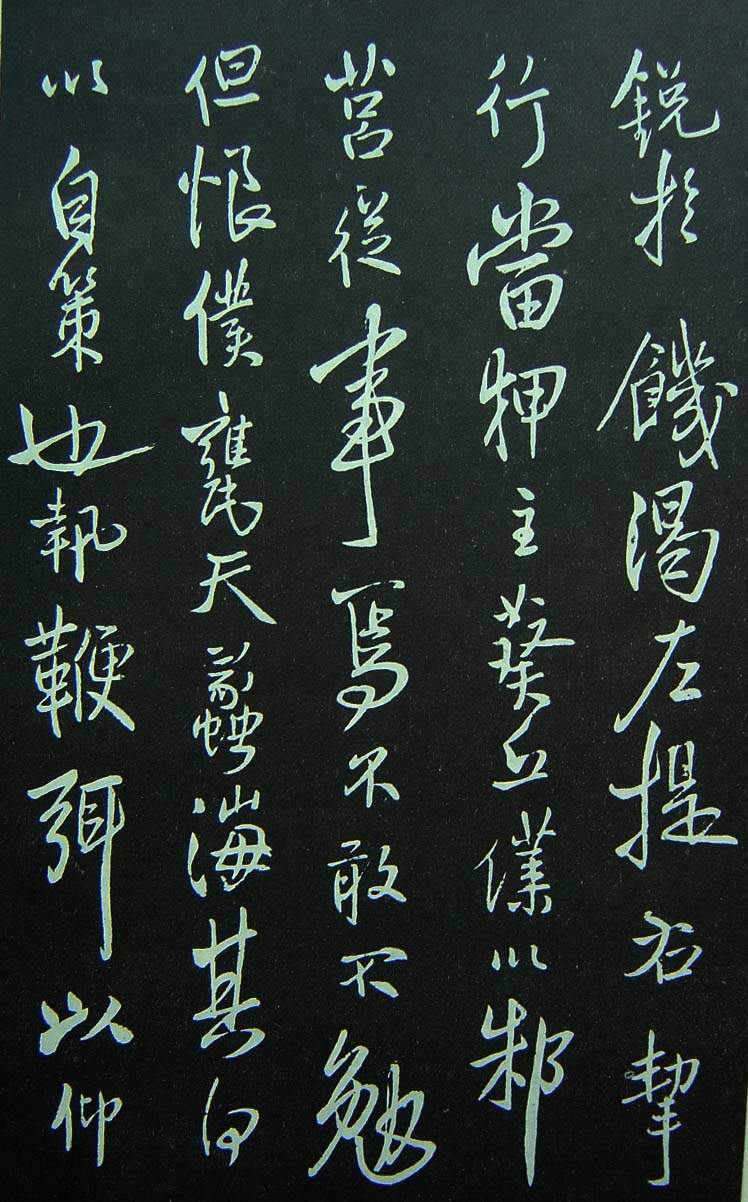 銳於饑渴左提右挈
行當狎主葵丘僕以邾
莒從事焉不敢不勉
但恨僕甕天蠡海其何
以自策也執鞭弭以仰